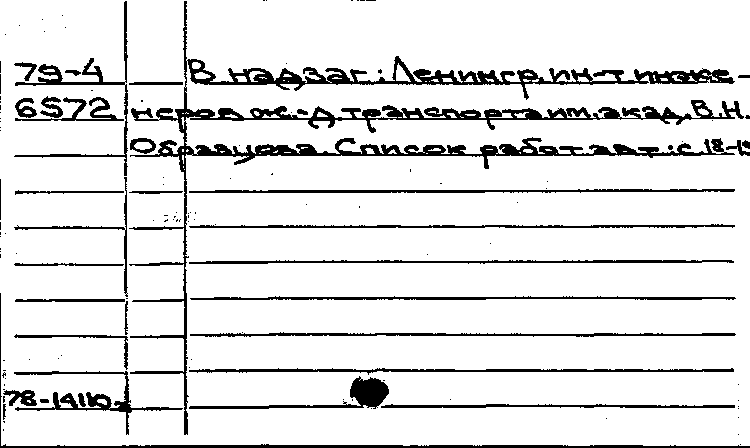 79-4 В надзаг.: Ленингр. ин-т инже-
6572 неров ж.-д. транспорта им. акад. В.Н.
Образцова. Список работ авт.: с. 18-19
78-14110